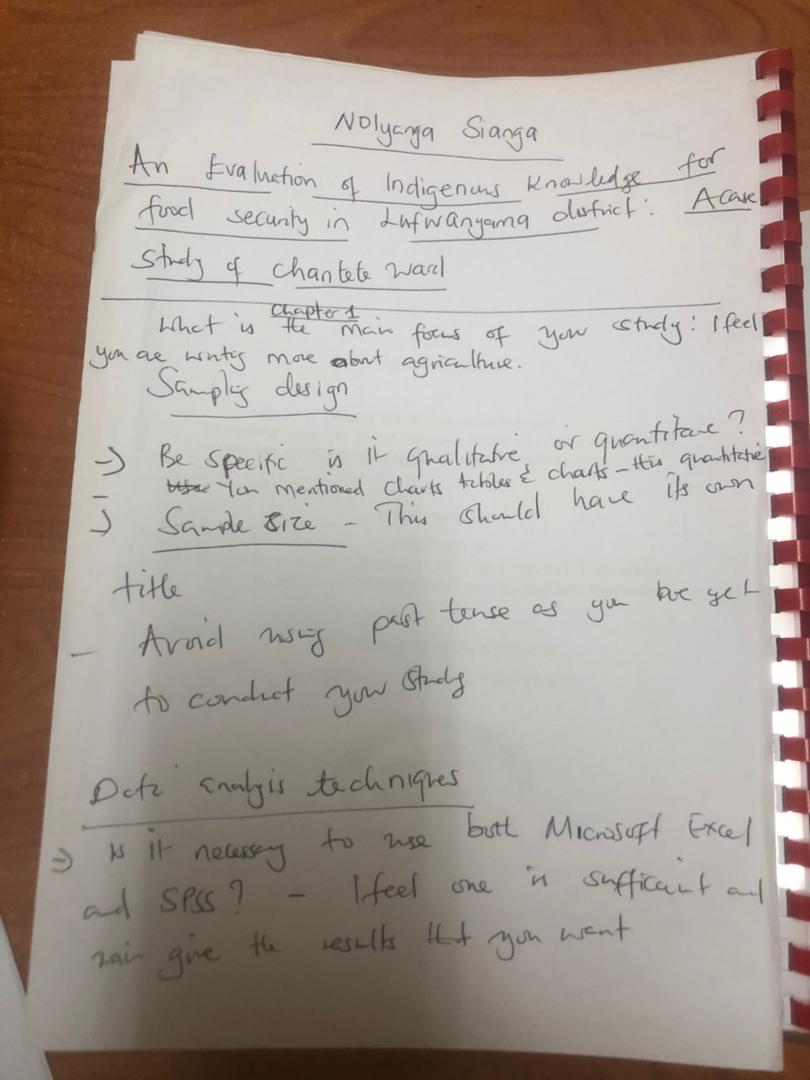 Nolyanga Sianga
An Evaluation of Indigenous Knowledge for
food security in Lufwanyama district: A case
study of Chantete Ward
Chapter 1
What is the main focus of your study: I feel
you are writing more about agriculture.
Sampling design
→ Be specific is it qualitative or quantitave?
You mentioned charts tables & charts – this quantitative
→ Sample size – This should have its own
title
– Avoid using past tense as you are yet
to conduct your study
Data analysis techniques
⇒ Is it necessary to use both Microsoft Excel
and SPSS? – I feel one is sufficient and
give the results that you want